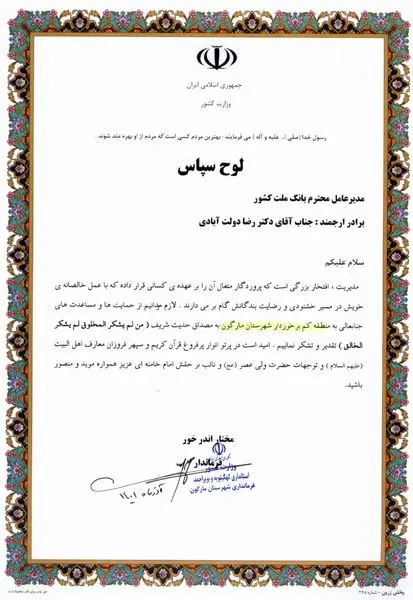 جمهوری اسلامی ایران
وزارت کشور
رسول خدا (صلی ا... علیه و آله ) می فرمایند : بهترین مردم کسی است که مردم از او بهره مند شوند .
لوح سپاس
مدیرعامل محترم بانک ملت کشور
برادر ارجمند : جناب آقای دکتر رضا دولت آبادی
سلام علیکم
مدیریت ، افتخار بزرگی است که پروردگار متعال آن را بر عهده ی کسانی قرار داده که با عمل خالصانه ی
خویش در مسیر خشنودی و رضایت بندگانش گام بر می دارند . لازم میدانیم از حمایت ها و مساعدت های
جنابعالی به منطقه کم برخوردار شهرستان مارگون به مصداق حدیث شریف ( من لم یشکر المخلوق لم یشکر
الخالق ) تقدیر و تشکر نماییم . امید است در پرتو انوار پرفروغ قرآن کریم و سپهر فروزان معارف اهل البیت
(علیهم السلام ) و توجهات حضرت ولی عصر (عج) و نائب بر حقش امام خامنه ای عزیز همواره موید و منصور
باشید.
مختار اندر خور
فرماندار
وزارت کشور
استانداری کهگیلویه و بویراحمد
فرمانداری شهرستان مارگون
آذرماه ۱۴۰۱
پخش زرین - شماره ۲۴۵